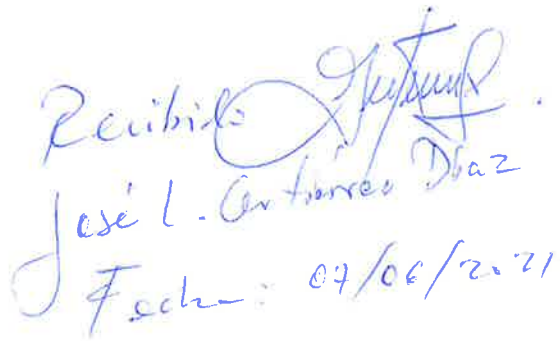 Recibido
José L. Gutiérrez Díaz
Fecha: 07/06/2021